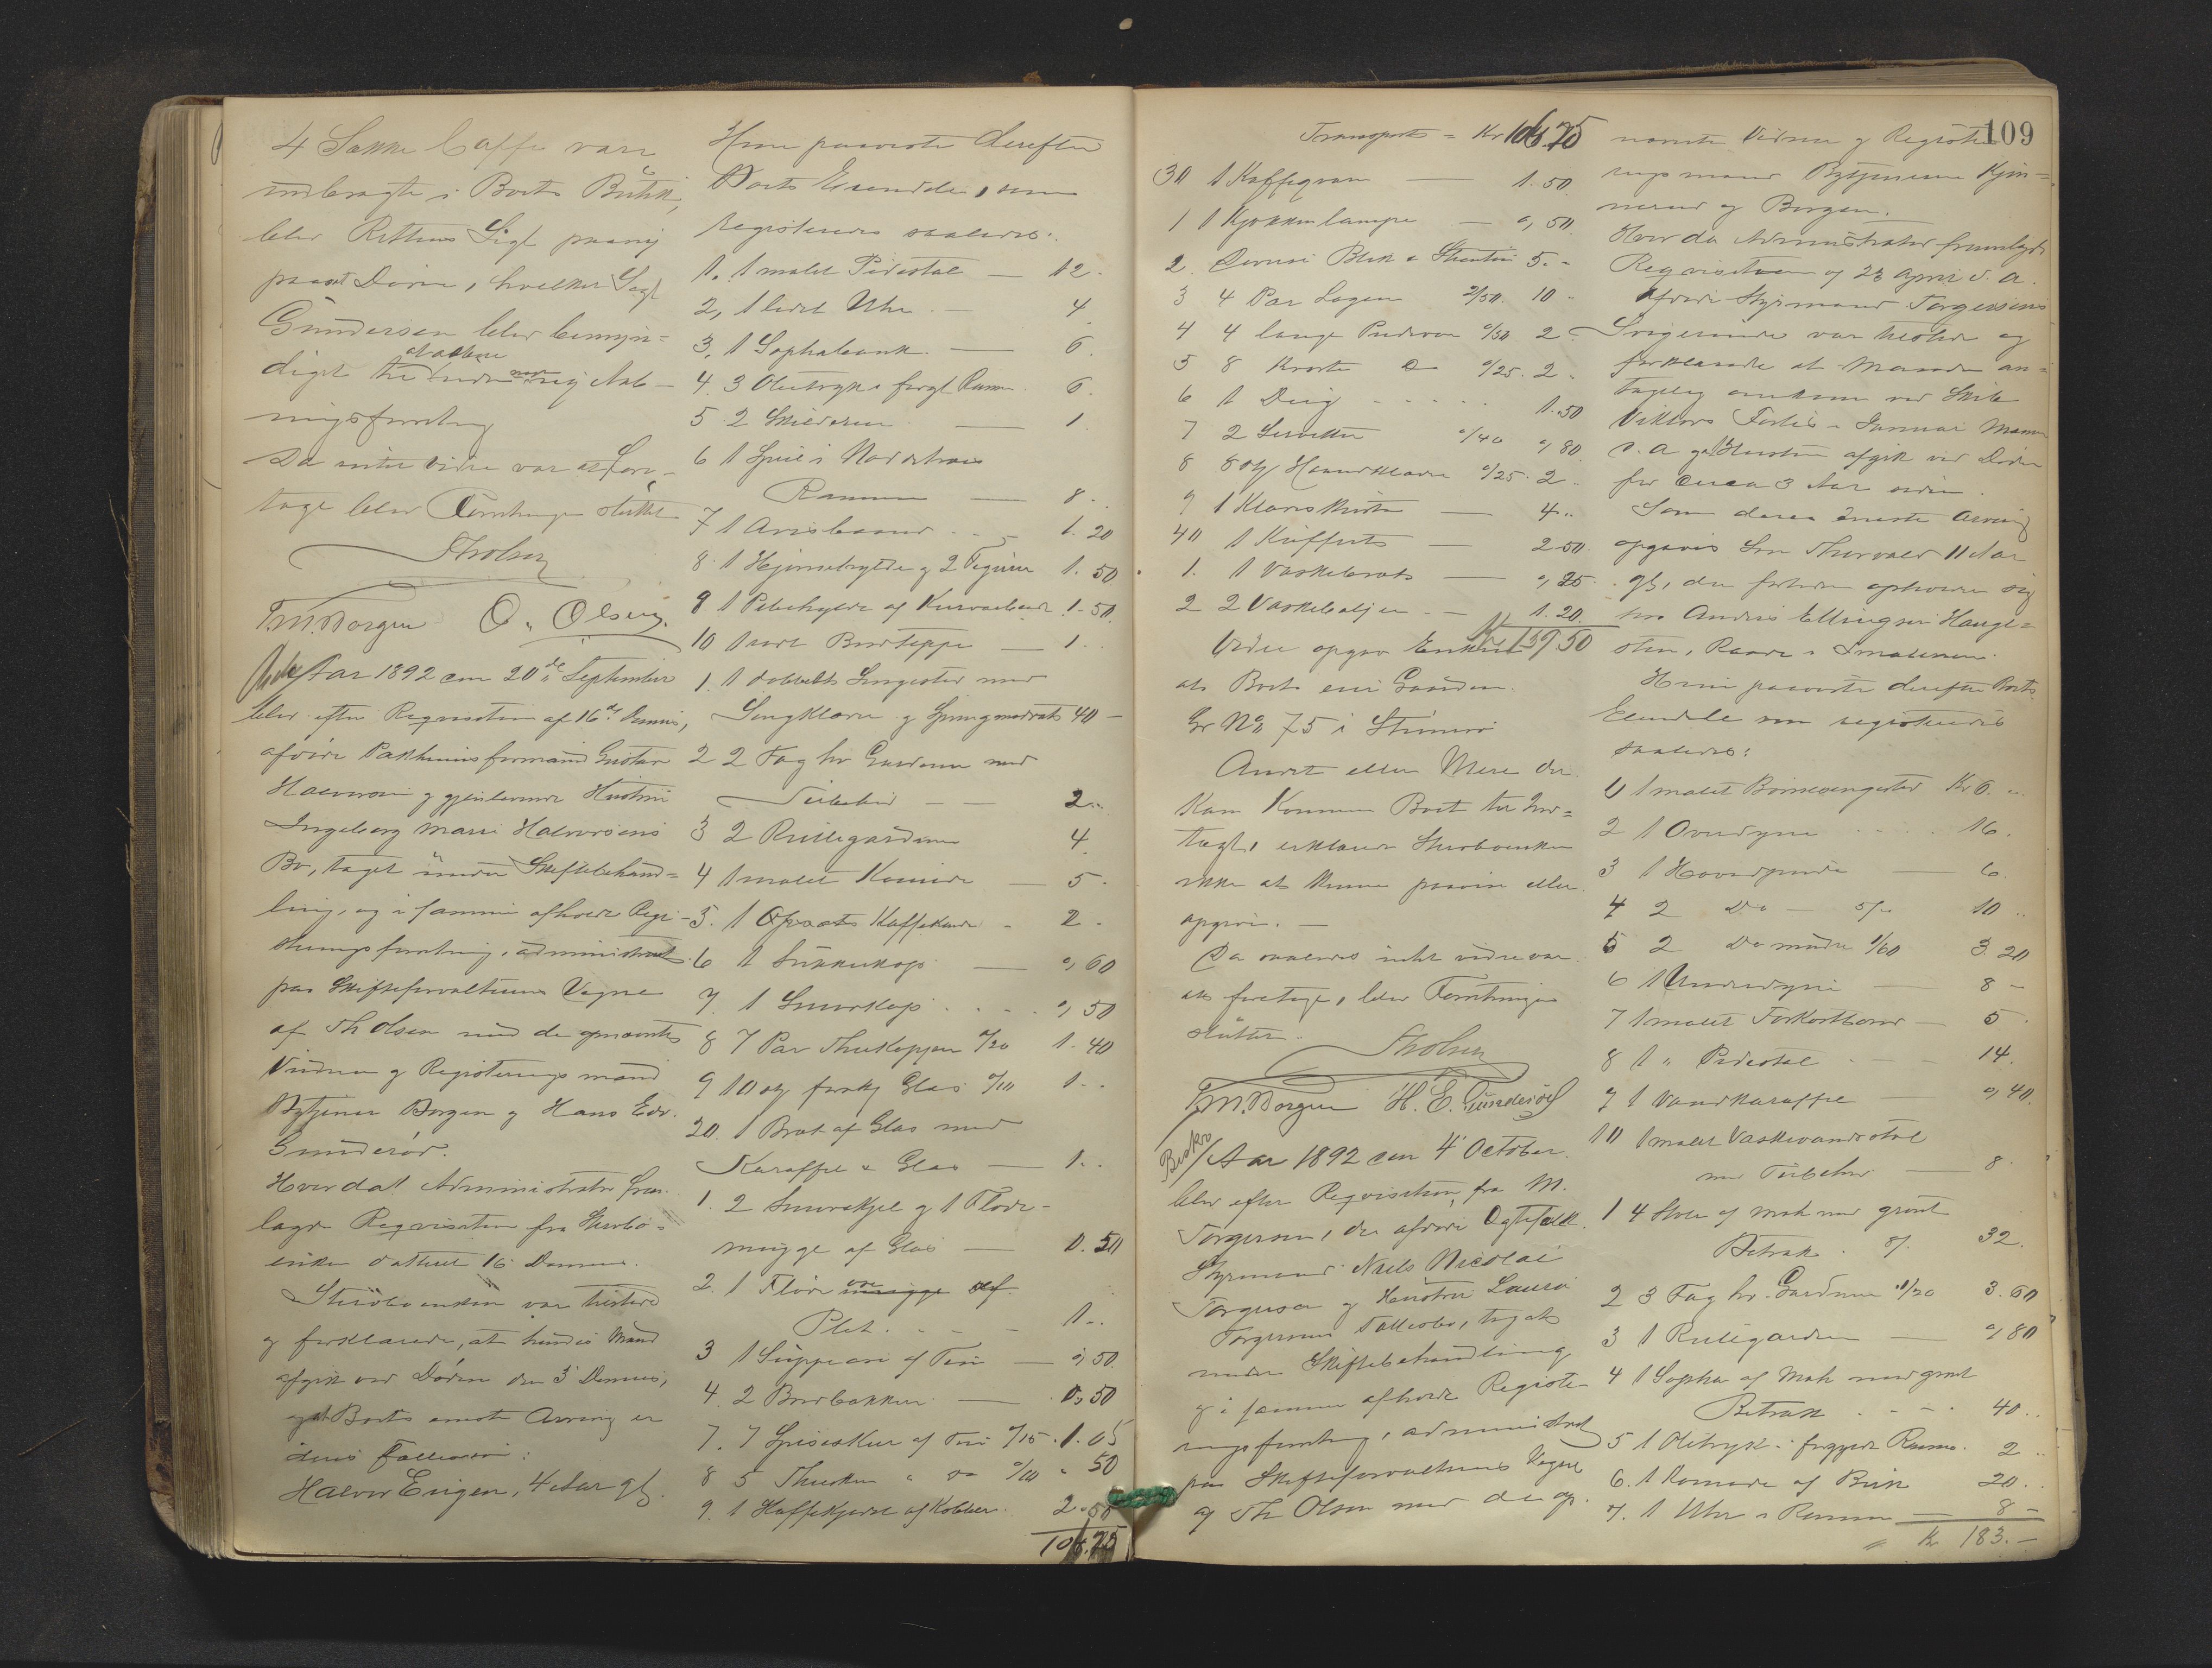 4 Sække Caffe vare
indbragte i Boets Butik,
blev Rettens Segl paany
paasat Døren, hvilket Segl
Gundersen blev bemyn=
diget til at aabne
ningsforretning
Da intet videre var at fore-
tage blev Forretningen sluttet
Th Olsen
T. M. Borgen O. Olsen.
Aar 1892 den 20de September
blev efter Requisition af 16de dennes,
afdøde Pakhuusformand Gustav
Halvorsen og gjenlevende Hustru
Ingeborg Marie Halvorsens
Bo, taget under Skiftebehand=
ling, og i samme afholdt Regi-
streringsforretning, administreret
paa Skifteforvalterens Vegne
af Th Olsen med de opnævnte
Vidner og Registrerings mænd
Bytjener Borgen og Hans Edv.
Gunderød.
Hvorda Administrator frem-
lagde Requisition fra Sterbo-
enken dateret 16 Dennes.
Sterboenken var tilstede
og forklarede, at hendes Mand
afgik ved Døden den 3 Dennes,
og at Boets eneste Arving er
deres Fællessøn:
Halvor Eugen, 4 Aar gl.
Hun paaviste derefter
Boets Eiendele, som
registreredes saaledes:
1. 1 malet Pidestal — 12.
2, 1 lidet Uhr — 4
3, 1 Sophabænk — 6.
4. 3 Olietryk i forgl Ramme 6.
5 2 Skilderier — 1.
6 1 Speil i Nøddetræes
Ramme — 8.
7 1 Avisbaand — 1.20
8. 1 Hjørnehylde og 2 Figurer 1.50
9 1 Pibehylde af Kurvarbeide 1.50.
10 1 rødt Bordteppe — 1.
1. 1 dobbelt Sengested med
Sengklæder og Springmadrats 40 —
2 2 Fag hv Gardiner med
Tilbehør — 2..
3 2 Rullegardiner 4
4 1 malet Komode — 5.
5. 1 Opsats Kaffekande - 2 -
6 1 Sukkerkop — ", 60
7. 1 Smørkop . . . . ", 50
8 7 Par Thekopper "/20 1.40
9 10 stk forskj Glas "/10 1..
20. 1 Bræt af Glas med
Karaffel & Glas — 1..
1. 2 Smørskjel og 1 Fløde-
mugge af Glas — 0.50
2. 1 Fløde øse af
Plet. — 1..
3 1 Suppeøse af Tin — ", 50.
4. 2 Brødbakker — 0,50
7. 7 Spiseskeer af Tin "/15. 1.05
8 5 Theskeer " do "/10 " 50
9. 1 Kaffekjedel af Kobber. 2.50
106.75
109
Transport = Kr 106.75
30 1 Kaffeqvern — 1.50.
1 1 Kjøkkenlampe — ", 50.
2. Diverse Blik & Stentøi 5.-
3 4 Par Lagen 2/50. 10 -
4 4 lange Pudevar "/50 2 -
5 8 korte Do "/25. 2.
6 1 Dug . . . . . 1.50
7 2 Servietter "/40 ", 80
8 8 stk Haandklæder "/25. 2..
9 1 Klædeskurv — 4..
40 1 Kuffert — 2.50.
1. 1 Vaskebræt — ", 25.
2 2 Vaskebaljer — 1.20.
Kr 139.50
Videre opgav Enken
at Boet eier Gaarden.
Gr No 75 i Strømsø
Andet eller Mere der
kan komme Boet til Ind=
tægt, erklærede Sterboenken
ikke at kunne paavise eller
opgive. —
Da saaledes intet videre var
at foretage, blev Forretningen
sluttet.
Th Olsen
T. M. Borgen H. E. Gunderød
Aar 1892 den 4 October.
blev efter Requisition fra M.
Torgersen, den afdøde Ægtefolk.
Styrmand Niels Nicolai
Torgersen og Hustru Laura
Torgersens Fællesbo, tagen
under Skiftebehandling
og i samme afholdt Registre-
ringsforretning, administreret
paa Skifteforvalterens Vegne
af Th Olsen med de op-
nævnte Vidner og Registre-
rings mænd Bytjenerne Kjøn=
nerud og Borgen.
Hvorda Administrator fremlagde
Requisitionen af 23 April d. A.
Afdøde Styrmand Torgersens
Svigerinde var tilstede og
forklarede at Manden an=
tagelig omkom ved Skib
Viktors Forlis i Januar Maaned
d. A og at Hustruen afgik ved Døden
for circa 3 Aar siden.
Som deres eneste Arving
opgaves Søn Thorvald 11 Aar
gl, der for tiden opholder sig
hos Anders Ellingsen Hauge=
sten, Raade i Smaalenene.
Hun paaviste derefter Boets
Eiendele som registreredes
saaledes:
1 1 malet Børnesengested Kr 6. "
2 1 Overdyne . . . . 16.
3 1 Hovedpude — 6.
4 2 Do — 5/- 10 ..
5 2 Do mindre 1/60 3.20
6 1 Underdyne — 8 -
7 1 malet Forkortbord — 5.
8 1 " Pidestal — 14.
9 1 Vandkaraffel — ", 40.
10 1 malet Vaskevandsstol
med Tilbehør — 8.
1 4 Stole af Mah med grønt
Betræk . 8/. 32.
2 3 Fag hv. Gardiner 1/20 3.60
3 1 Rullegardin — ", 80
4 1 Sopha af Mah med grønt
Betræk . . . . 40..
5 1 Olietryk i forgyldt Ramme. 2 ..
6. 1 Komode af Birk 20..
7. 1 Uhr i Ramme — 8 -
Kr 183.-